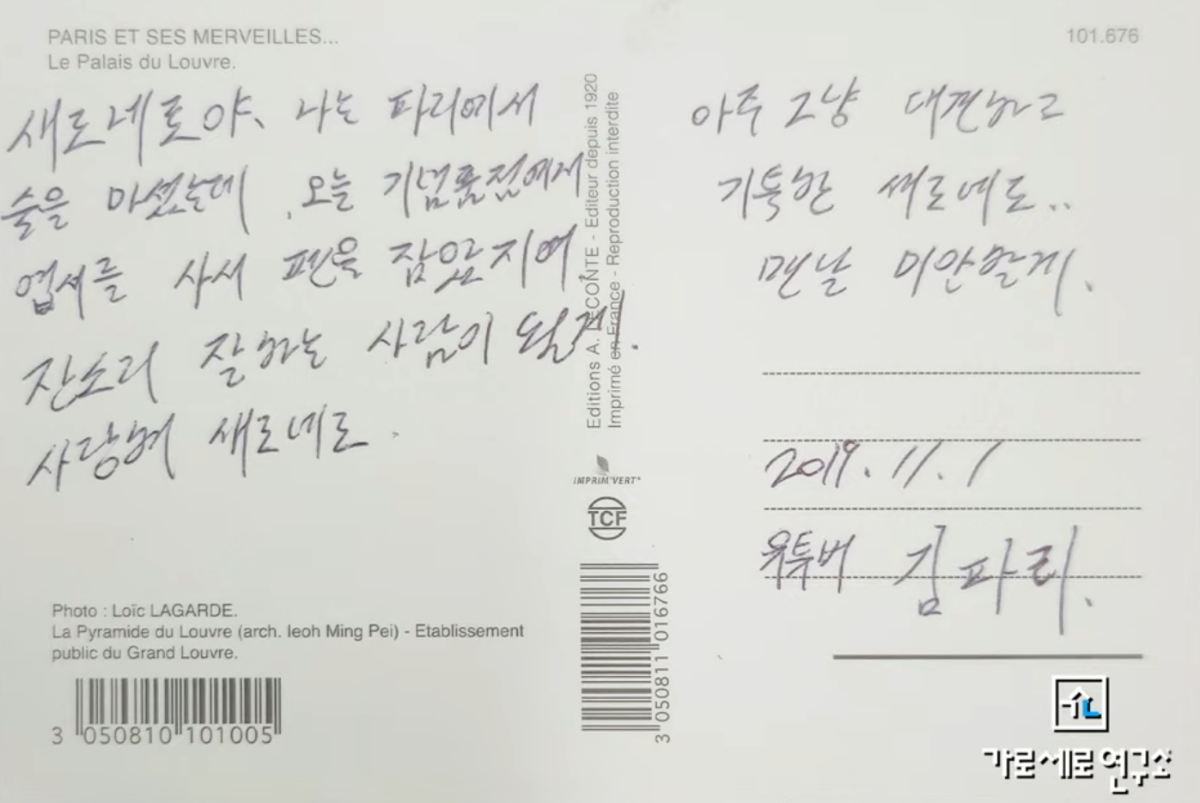 PARIS ET SES MERVEILLES...
Le Palais du Louvre.
101.676
새로네로야, 나는 파리에서
술을 마셨는데, 오늘 기념품점에서
엽서를 사서 펜을 잡았지여
잔소리 잘하는 사람이 될게.
사랑해 새로네로
아주 그냥 대견하고
기특한 새로네로..
맨날 미안할게.
2019.11.1
유투버 김파리.
Editions A. LECONTE - Editeur depuis 1920
Imprimé en France - Reproduction interdite
IMPRIM'VERT®
TCF
Photo : Loïc LAGARDE.
La Pyramide du Louvre (arch. Ieoh Ming Pei) - Etablissement
public du Grand Louvre.
3 050810 101005
3 050811 016766
가로세로연구소